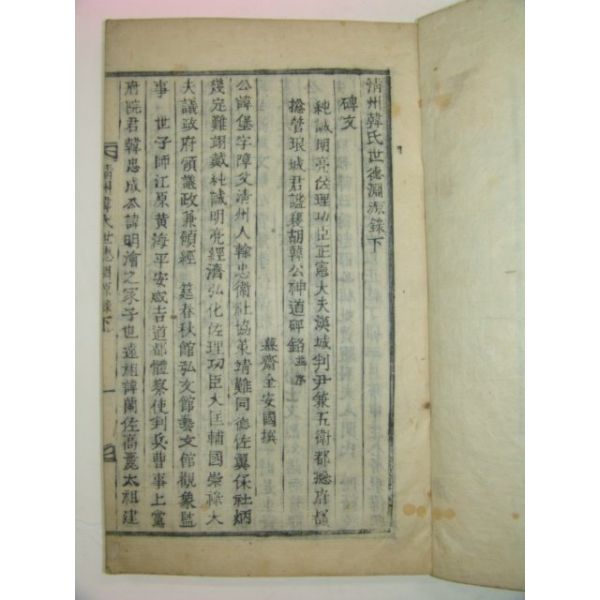 清州韓氏世德淵源錄下
碑文
純誠明亮佐理功臣正憲大夫漢城判尹兼五衛都摠府都
摠管琅城君諡襄胡韓公神道碑銘并序
慕齋金安國撰
公諱堡字障之淸州人翰忠衛社協策靖難同德佐翼保社炳
幾定難翊戴純誠明亮經濟弘化佐理功臣大匡輔國崇祿大
夫議政府領議政兼領經 筵春秋館弘文館藝文館觀象監
事 世子師江原黃海平安咸吉道都體察使判兵曹事上黨
府院君韓忠成公諱明澮之冢子也遠祖諱蘭佐高麗太祖建
清州韓氏世德淵源錄下
一